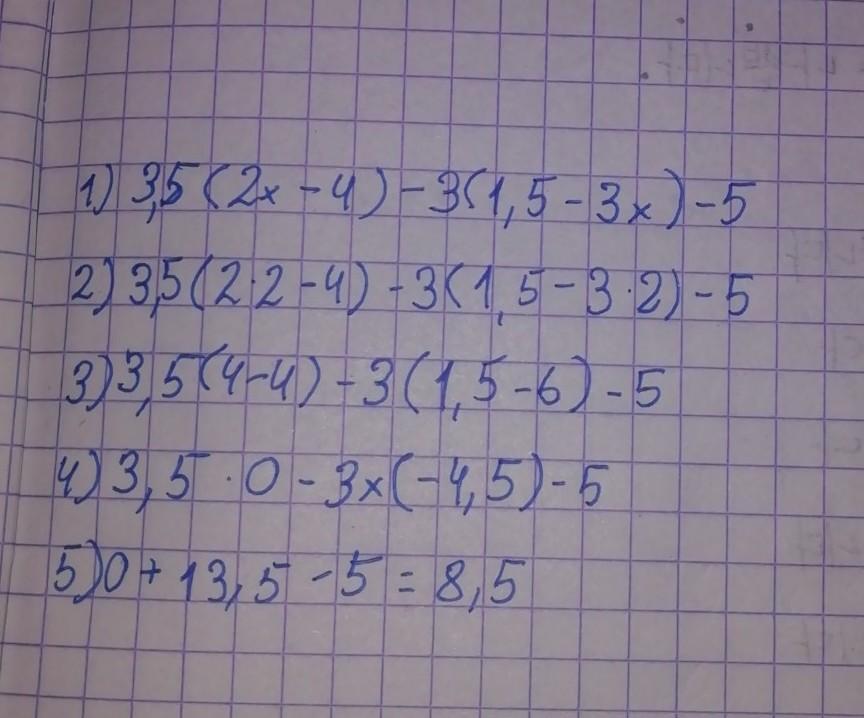 1) 3,5(2x-4)-3(1,5-3x)-5
2) 3,5(2·2-4)-3(1,5-3·2)-5
3) 3,5(4-4)-3(1,5-6)-5
4) 3,5·0-3x(-4,5)-5
5) 0+13,5-5=8,5